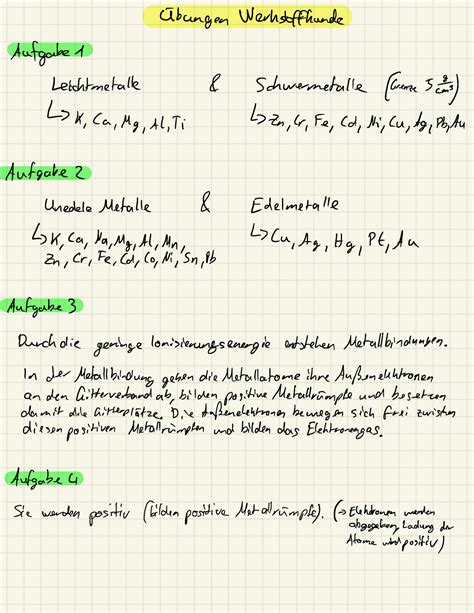 Übungen Werkstoffkunde
Aufgabe 1
Leichtmetalle & Schwermetalle (Grenze 5 g/cm³)
↳ K, Ca, Mg, Al, Ti ↳ Zn, Cr, Fe, Cd, Ni, Cu, Ag, Pb, Au
Aufgabe 2
Unedele Metalle & Edelmetalle
↳ K, Ca, Na, Mg, Al, Mn, ↳ Cu, Ag, Hg, Pt, Au
Zn, Cr, Fe, Cd, Co, Ni, Sn, Pb
Aufgabe 3
Durch die geringe Ionisierungsenergie entstehen Metallbindungen.
In der Metallbindung geben die Metallatome ihre Außenelektronen
an den Gitterverband ab, bilden positive Metallrümpfe und besetzen
damit die Gitterplätze. Die Außenelektronen bewegen sich frei zwischen
diesen positiven Metallrümpfen und bilden das Elektronengas.
Aufgabe 4
Sie werden positiv (bilden positive Metallrümpfe). (→ Elektronen werden
abgegeben, Ladung der
Atome wird positiv)